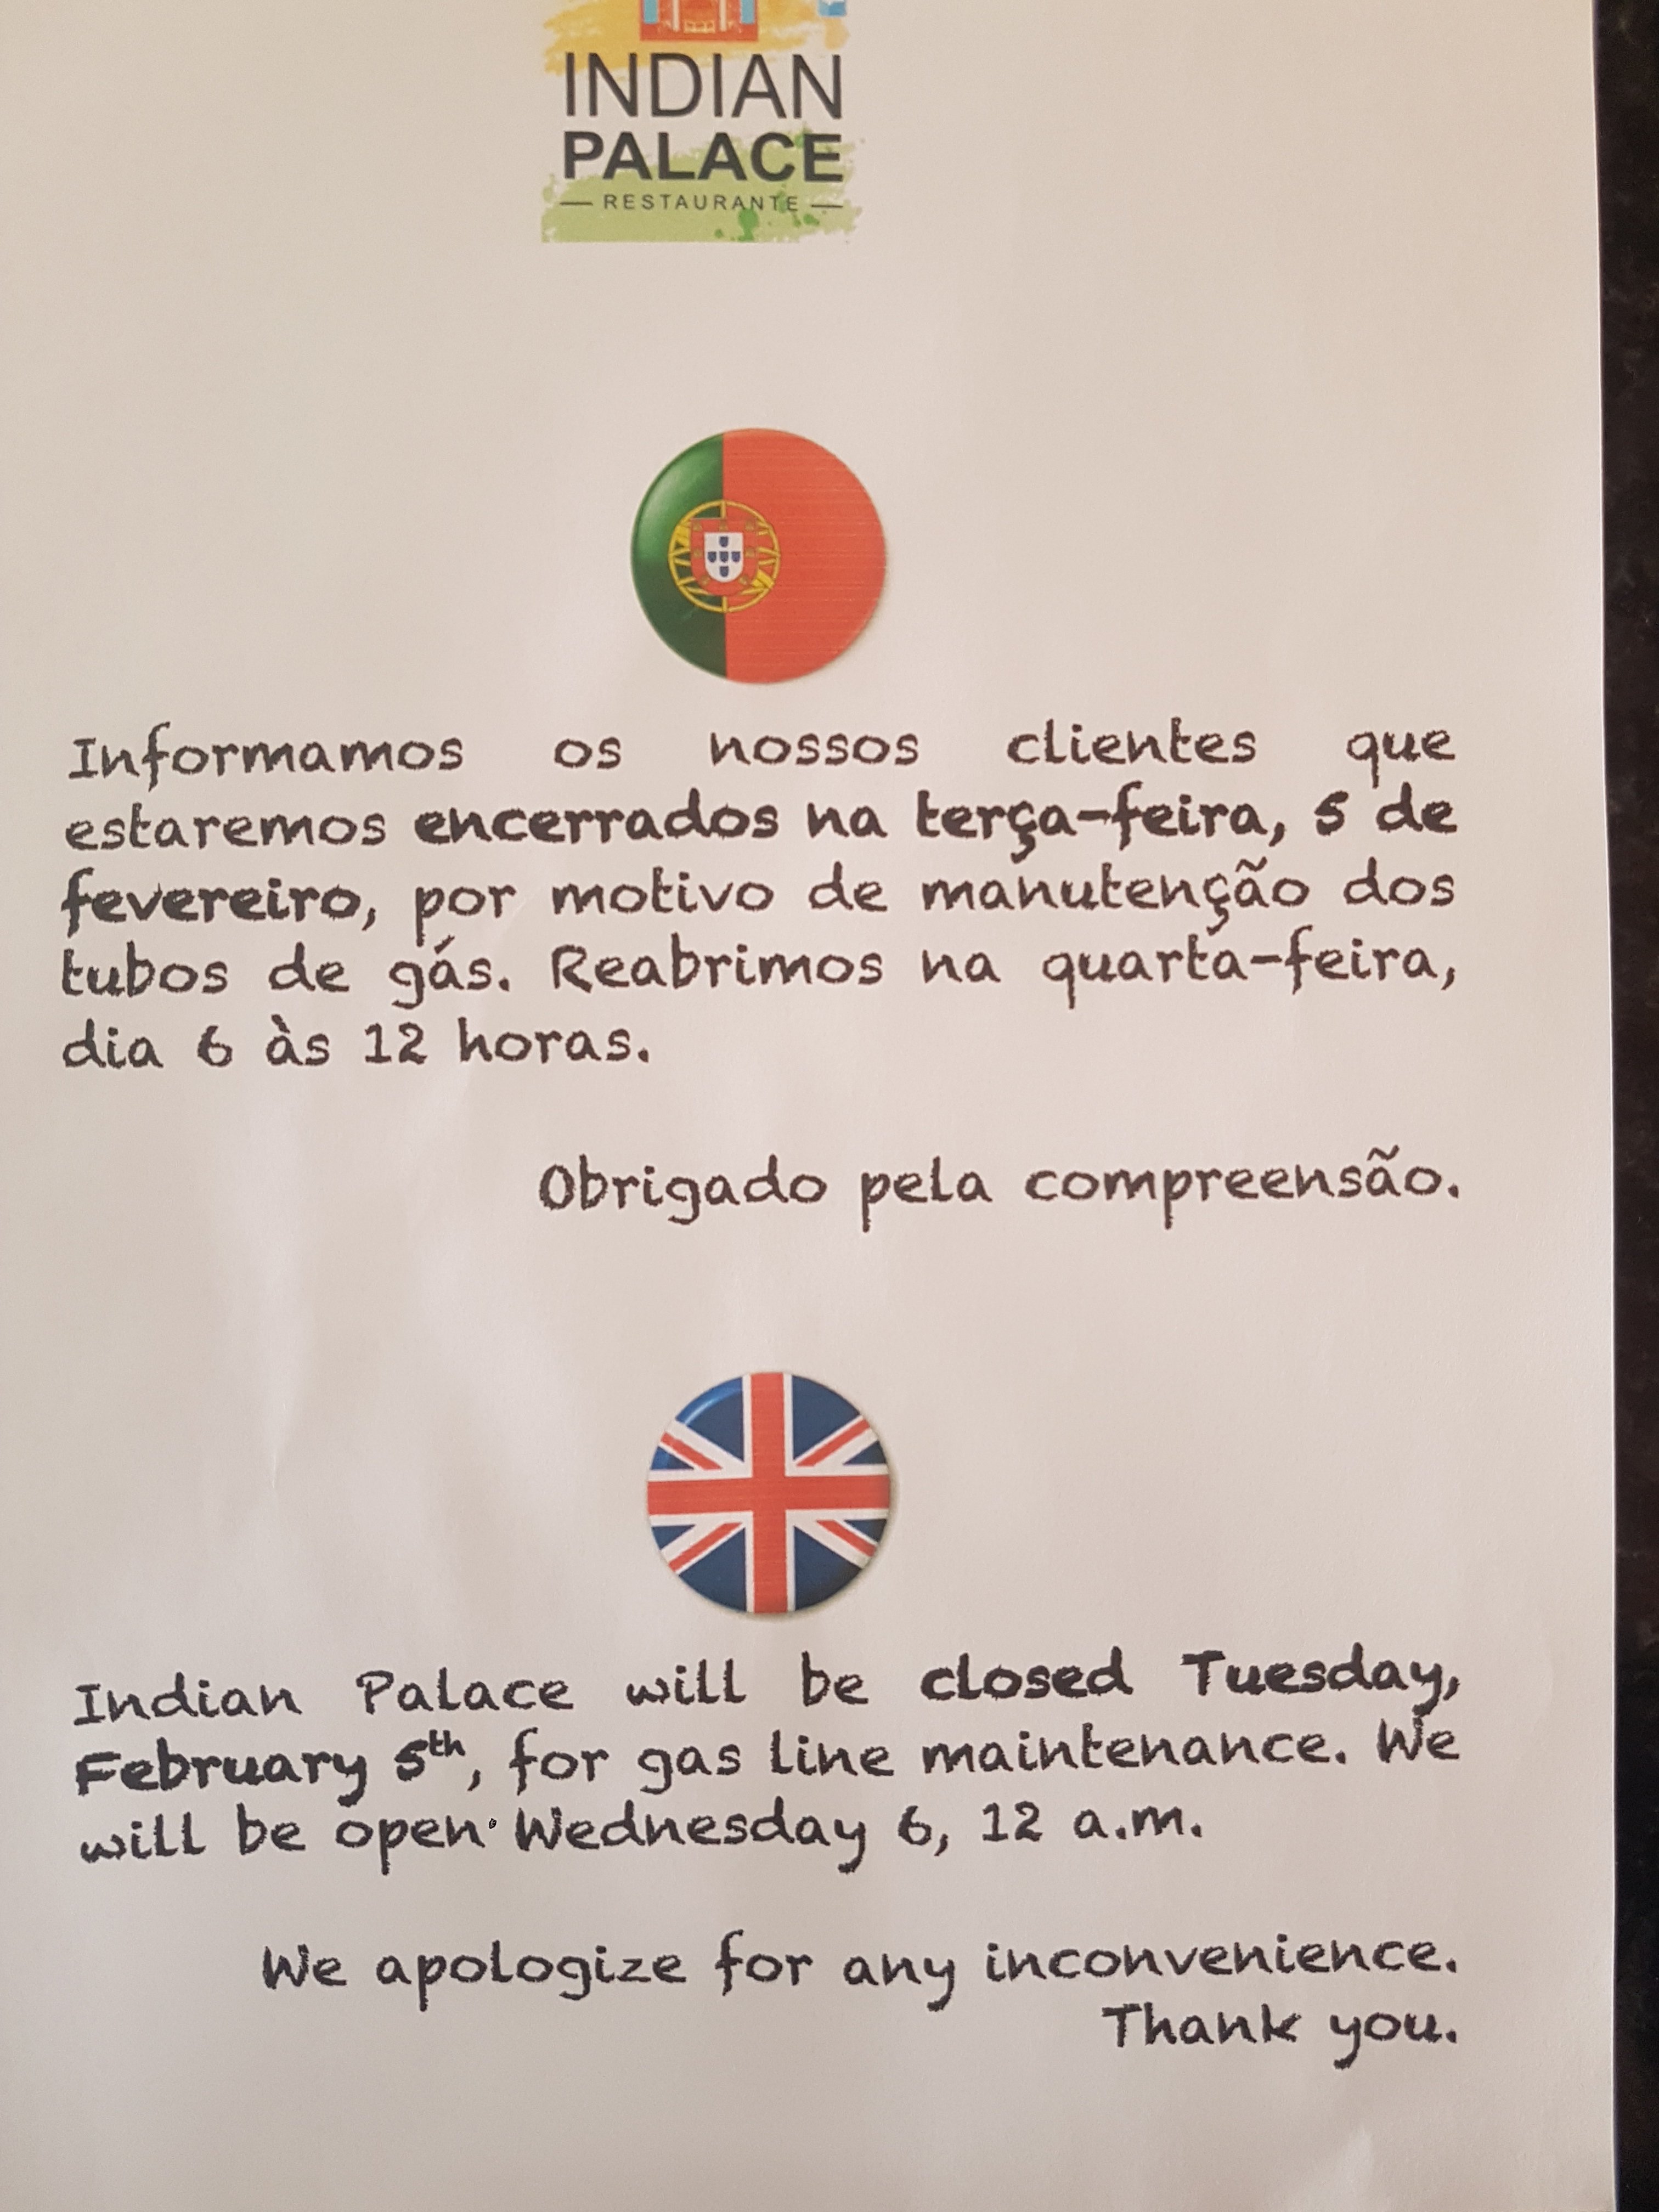 INDIAN
PALACE
— RESTAURANTE —
Informamos os nossos clientes que
estaremos encerrados na terça-feira, 5 de
fevereiro, por motivo de manutenção dos
tubos de gás. Reabrimos na quarta-feira,
dia 6 às 12 horas.
Obrigado pela compreensão.
Indian Palace will be closed Tuesday,
February 5th, for gas line maintenance. We
will be open Wednesday 6, 12 a.m.
We apologize for any inconvenience.
Thank you.